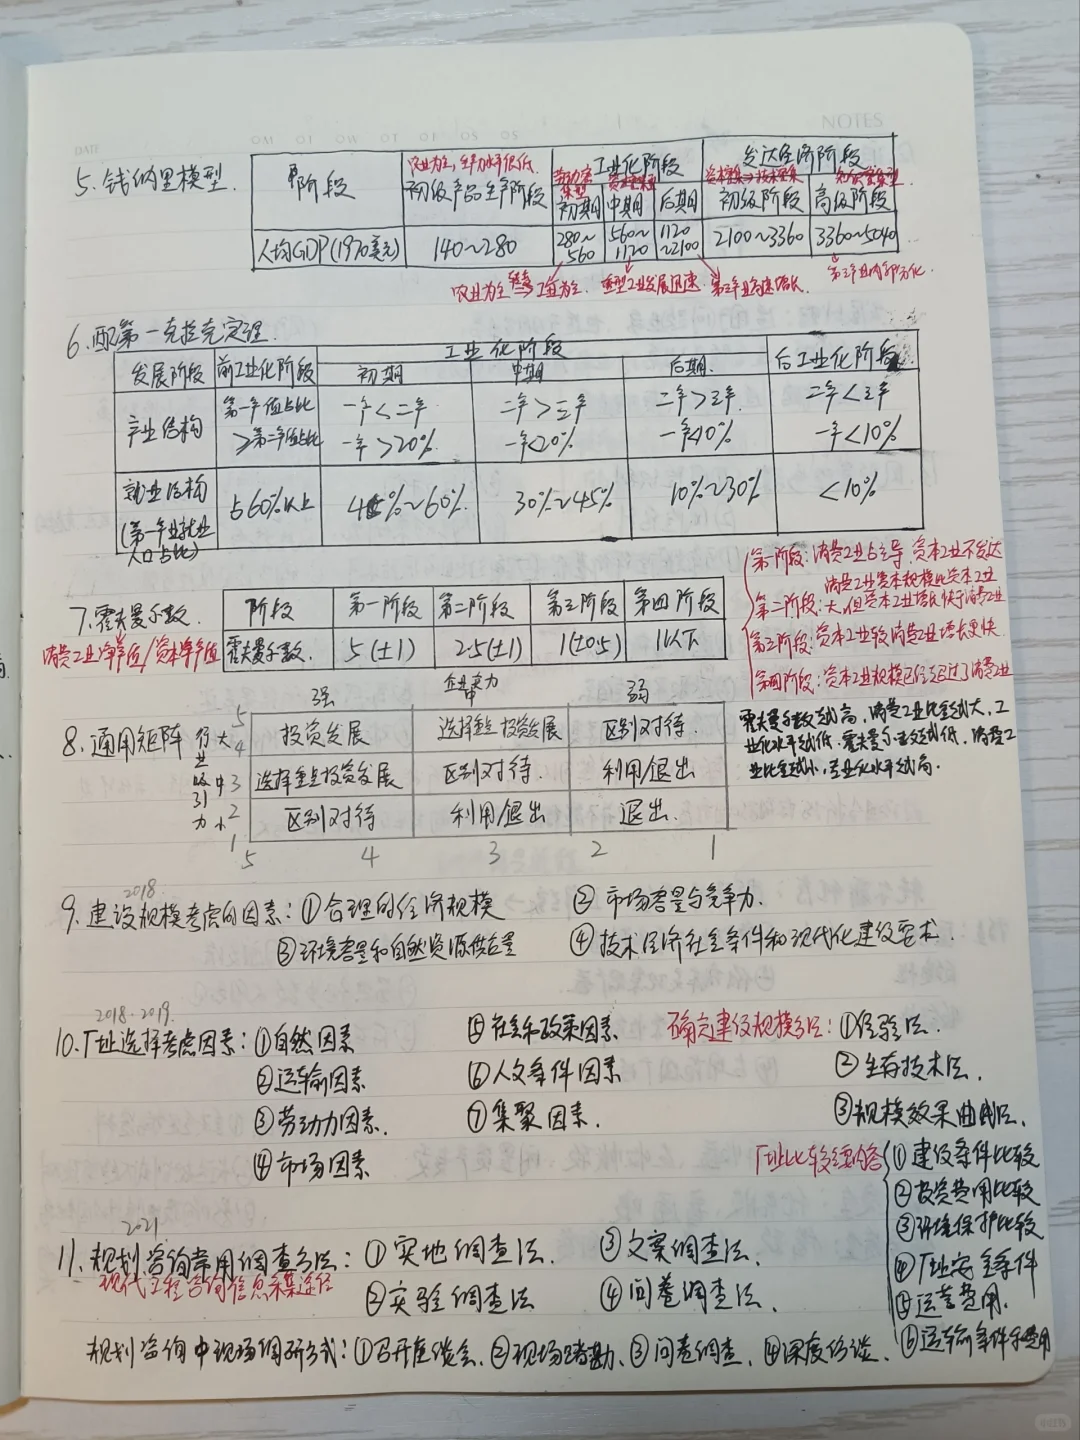 NOTES
DATE
5.钱纳里模型.
阶段 农业为主,生产力水平很低. 初级产品生产阶段 工业化阶段 发达经济阶段
劳动密集型 初期 中期 后期 资本密集→技术密集 初级阶段 高级阶段
人均GDP(1970美元) 140~280 280~560 560~1120 1120~2100 2100~3360 3360~5040
农业为主→工业为主. 重型工业发展迅速. 第三产业高速增长. 第三产业内部分化.
6.配第一克拉克定理.
发展阶段 前工业化阶段 工业化阶段 后工业化阶段
初期 中期 后期.
产业结构 第一产值占比>第二产值占比 一产<二产 一产>20%. 二产>三产 一产<20% 二产>三产. 一产<10% 二产<三产 一产<10%
就业结构(第一产业就业人口占比) 占60%以上 45%~60% 30%~45% 10%~30% <10%
7.霍夫曼系数. 阶段 第一阶段 第二阶段 第三阶段 第四阶段
消费工业净产值/资本净产值 霍夫曼系数. 5(±1) 2.5(±1) 1(±0.5) 1以下
第一阶段:消费工业占主导,资本工业不发达
第二阶段:消费工业资本规模比资本工业大,但资本工业增长快于消费工业
第三阶段:资本工业较消费工业增长更快.
第四阶段:资本工业规模已经超过了消费工业
霍夫曼系数越高,消费工业比重越大,工
业化水平越低.霍夫曼系数越低,消费工
业比重越小,工业化水平越高.
8.通用矩阵
企业实力
强 中 弱
行业吸引力
5
大 投资发展 选择重点投资发展 区别对待.
4
中 选择重点投资发展 区别对待. 利用/退出
3
小 区别对待 利用/退出 退出.
2
1
5 4 3 2 1
2018
9.建设规模考虑的因素:①合理的经济规模 ②市场容量与竞争力.
③环境容量和自然资源供应量 ④技术经济社会条件和现代化建设要求.
2018.2019.
10.厂址选择考虑因素:①自然因素 ⑤社会和政策因素 确定建设规模方法:①经验法.
②运输因素 ⑥人文条件因素 ②生存技术法.
③劳动力因素. ⑦集聚因素. ③规模效果曲线法.
④市场因素
厂址比较主要内容 ①建设条件比较
②投资费用比较
③环境保护比较
④厂址安全条件
⑤运营费用.
⑥运输条件及费用
2021
11.规划咨询常用调查方法:①实地调查法. ③文案调查法.
现代工程咨询信息采集途径 ②实验调查法 ④问卷调查法.
规划咨询中现场调研方式:①召开座谈会.②现场踏勘.③问卷调查.④深度访谈.